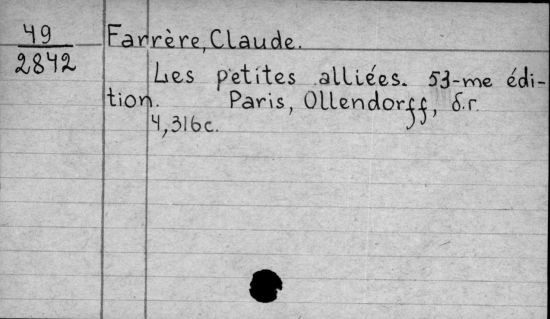 49
2842
Farrère, Claude.
Les petites alliées. 53-me édi-
tion. Paris, Ollendorff, б.г.
4,316с.